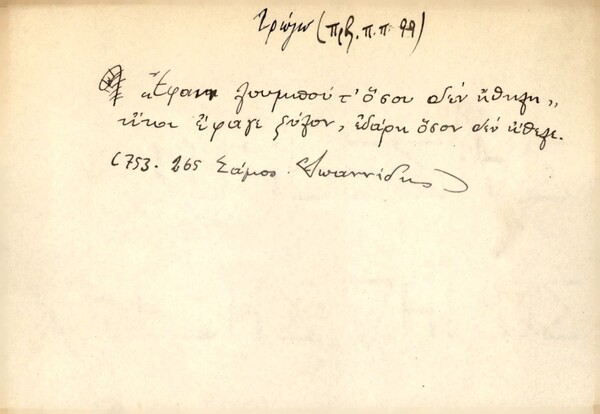 Τρώγω (πρβ. π.π. 99)
"Έφαγι ζουμπού τ' ὅσου δὲν ἤθιλι"
ἤτοι ἔφαγε ξύλον, ἐδάρη ὅσον δὲν ἤθελε.
(753. 265 Σάμος. Ἰωαννίδης)